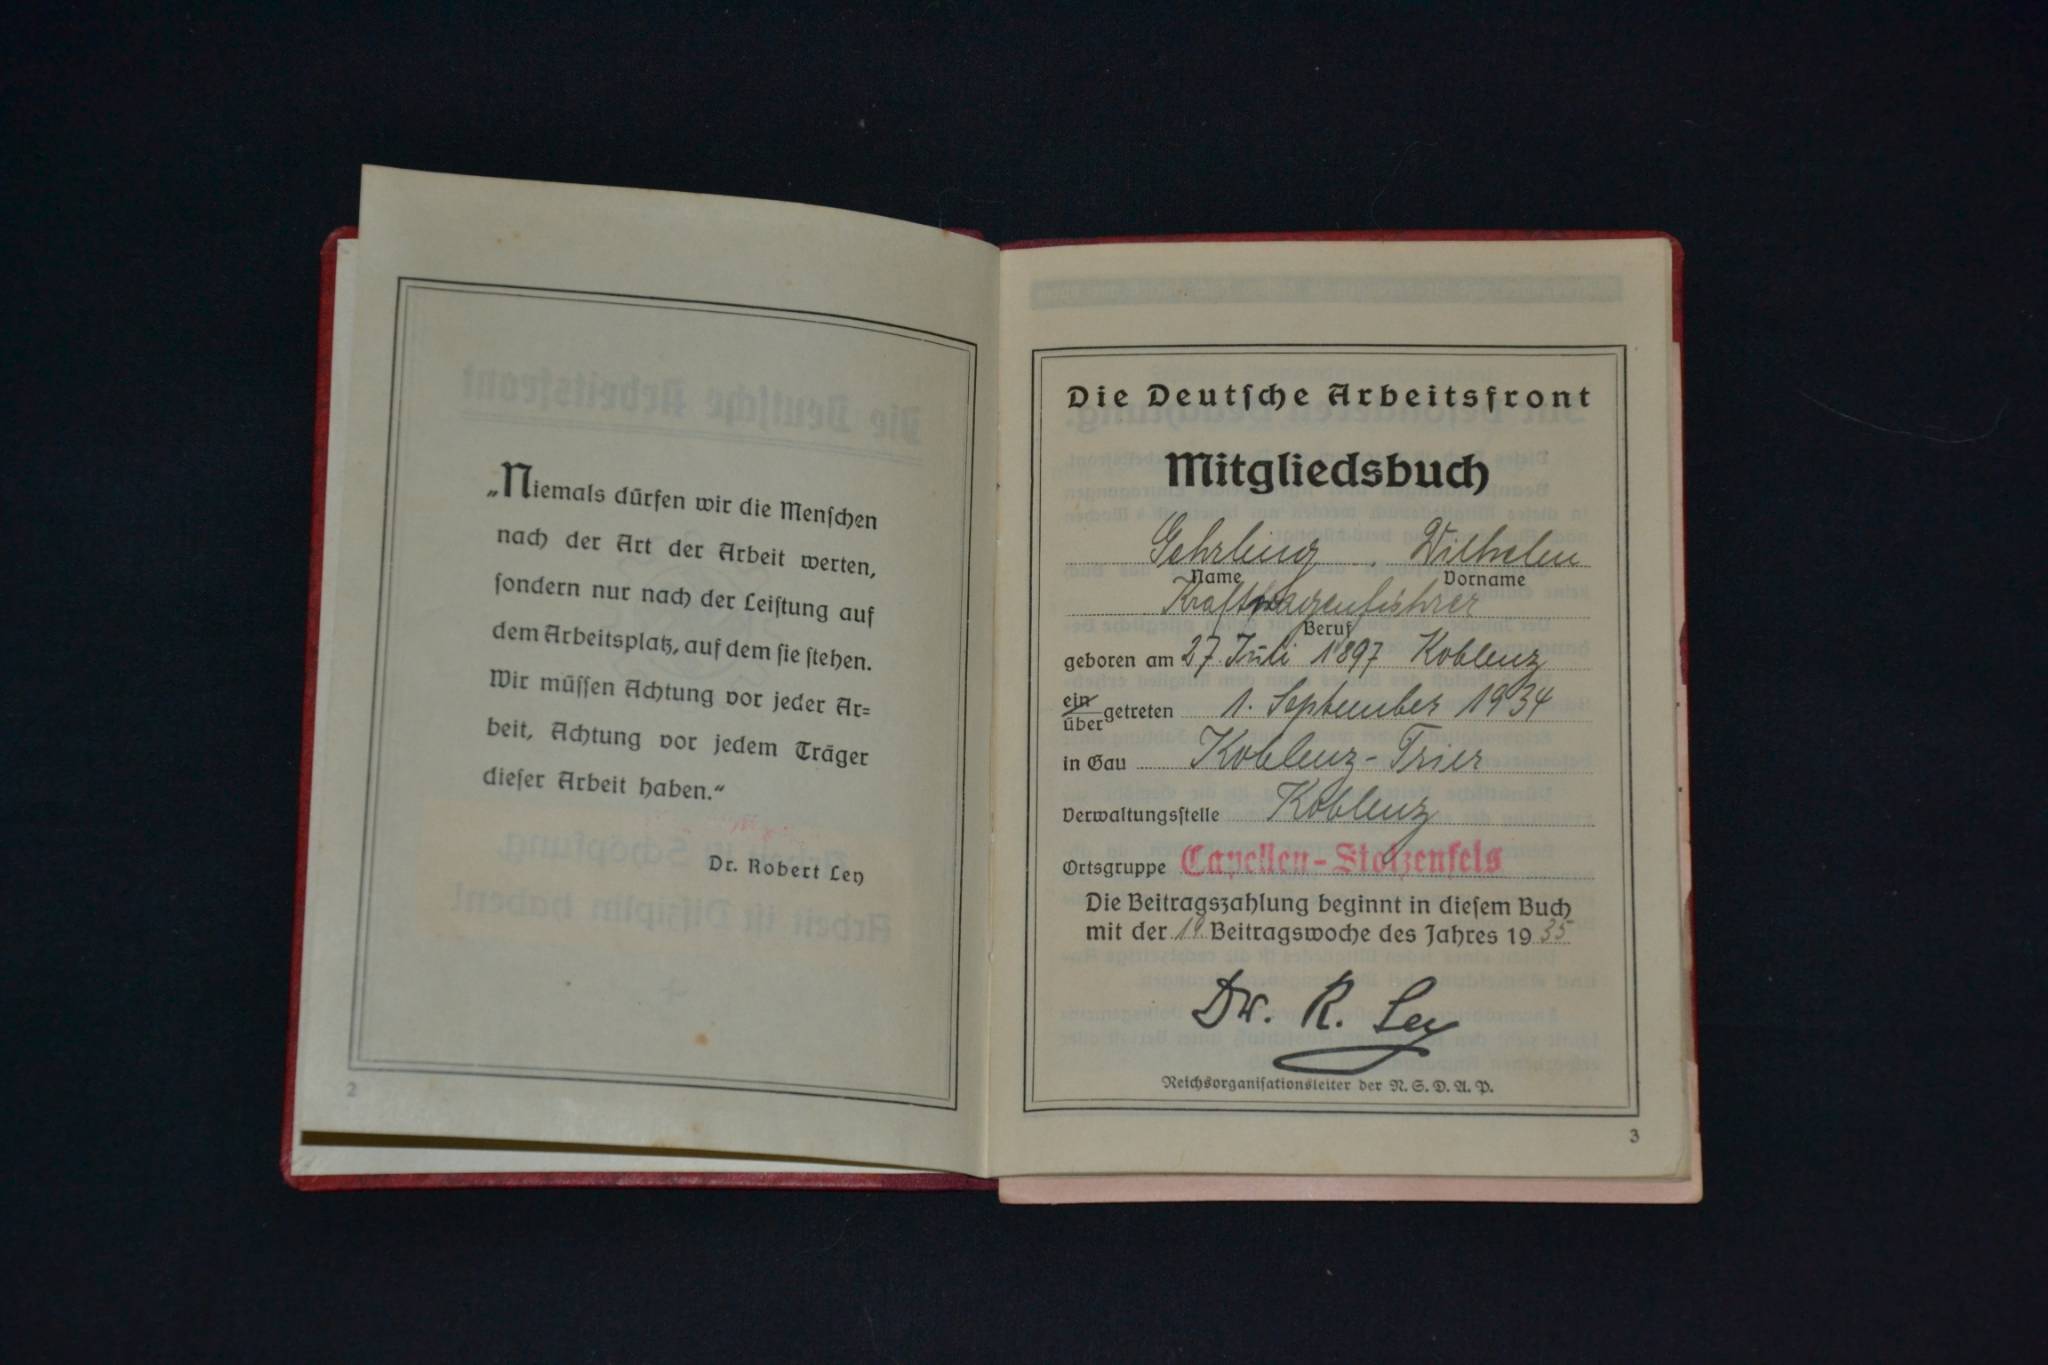 „Niemals dürfen wir die Menschen
nach der Art der Arbeit werten,
sondern nur nach der Leistung auf
dem Arbeitsplatz, auf dem sie stehen.
Wir müssen Achtung vor jeder Ar=
beit, Achtung vor jedem Träger
dieser Arbeit haben.“
Dr. Robert Ley
2
Die Deutsche Arbeitsfront
Mitgliedsbuch
Gehrling Wilhelm
Name Vorname
Kraftwagenführer
Beruf
geboren am 27. Juli 1897 Koblenz
ein
übergetreten 1. September 1934
in Gau Koblenz-Trier
Verwaltungsstelle Koblenz
Ortsgruppe Capellen-Stolzenfels
Die Beitragszahlung beginnt in diesem Buch
mit der 19. Beitragswoche des Jahres 1935
Dr. R. Ley
Reichsorganisationsleiter der N.S.D.A.P.
3